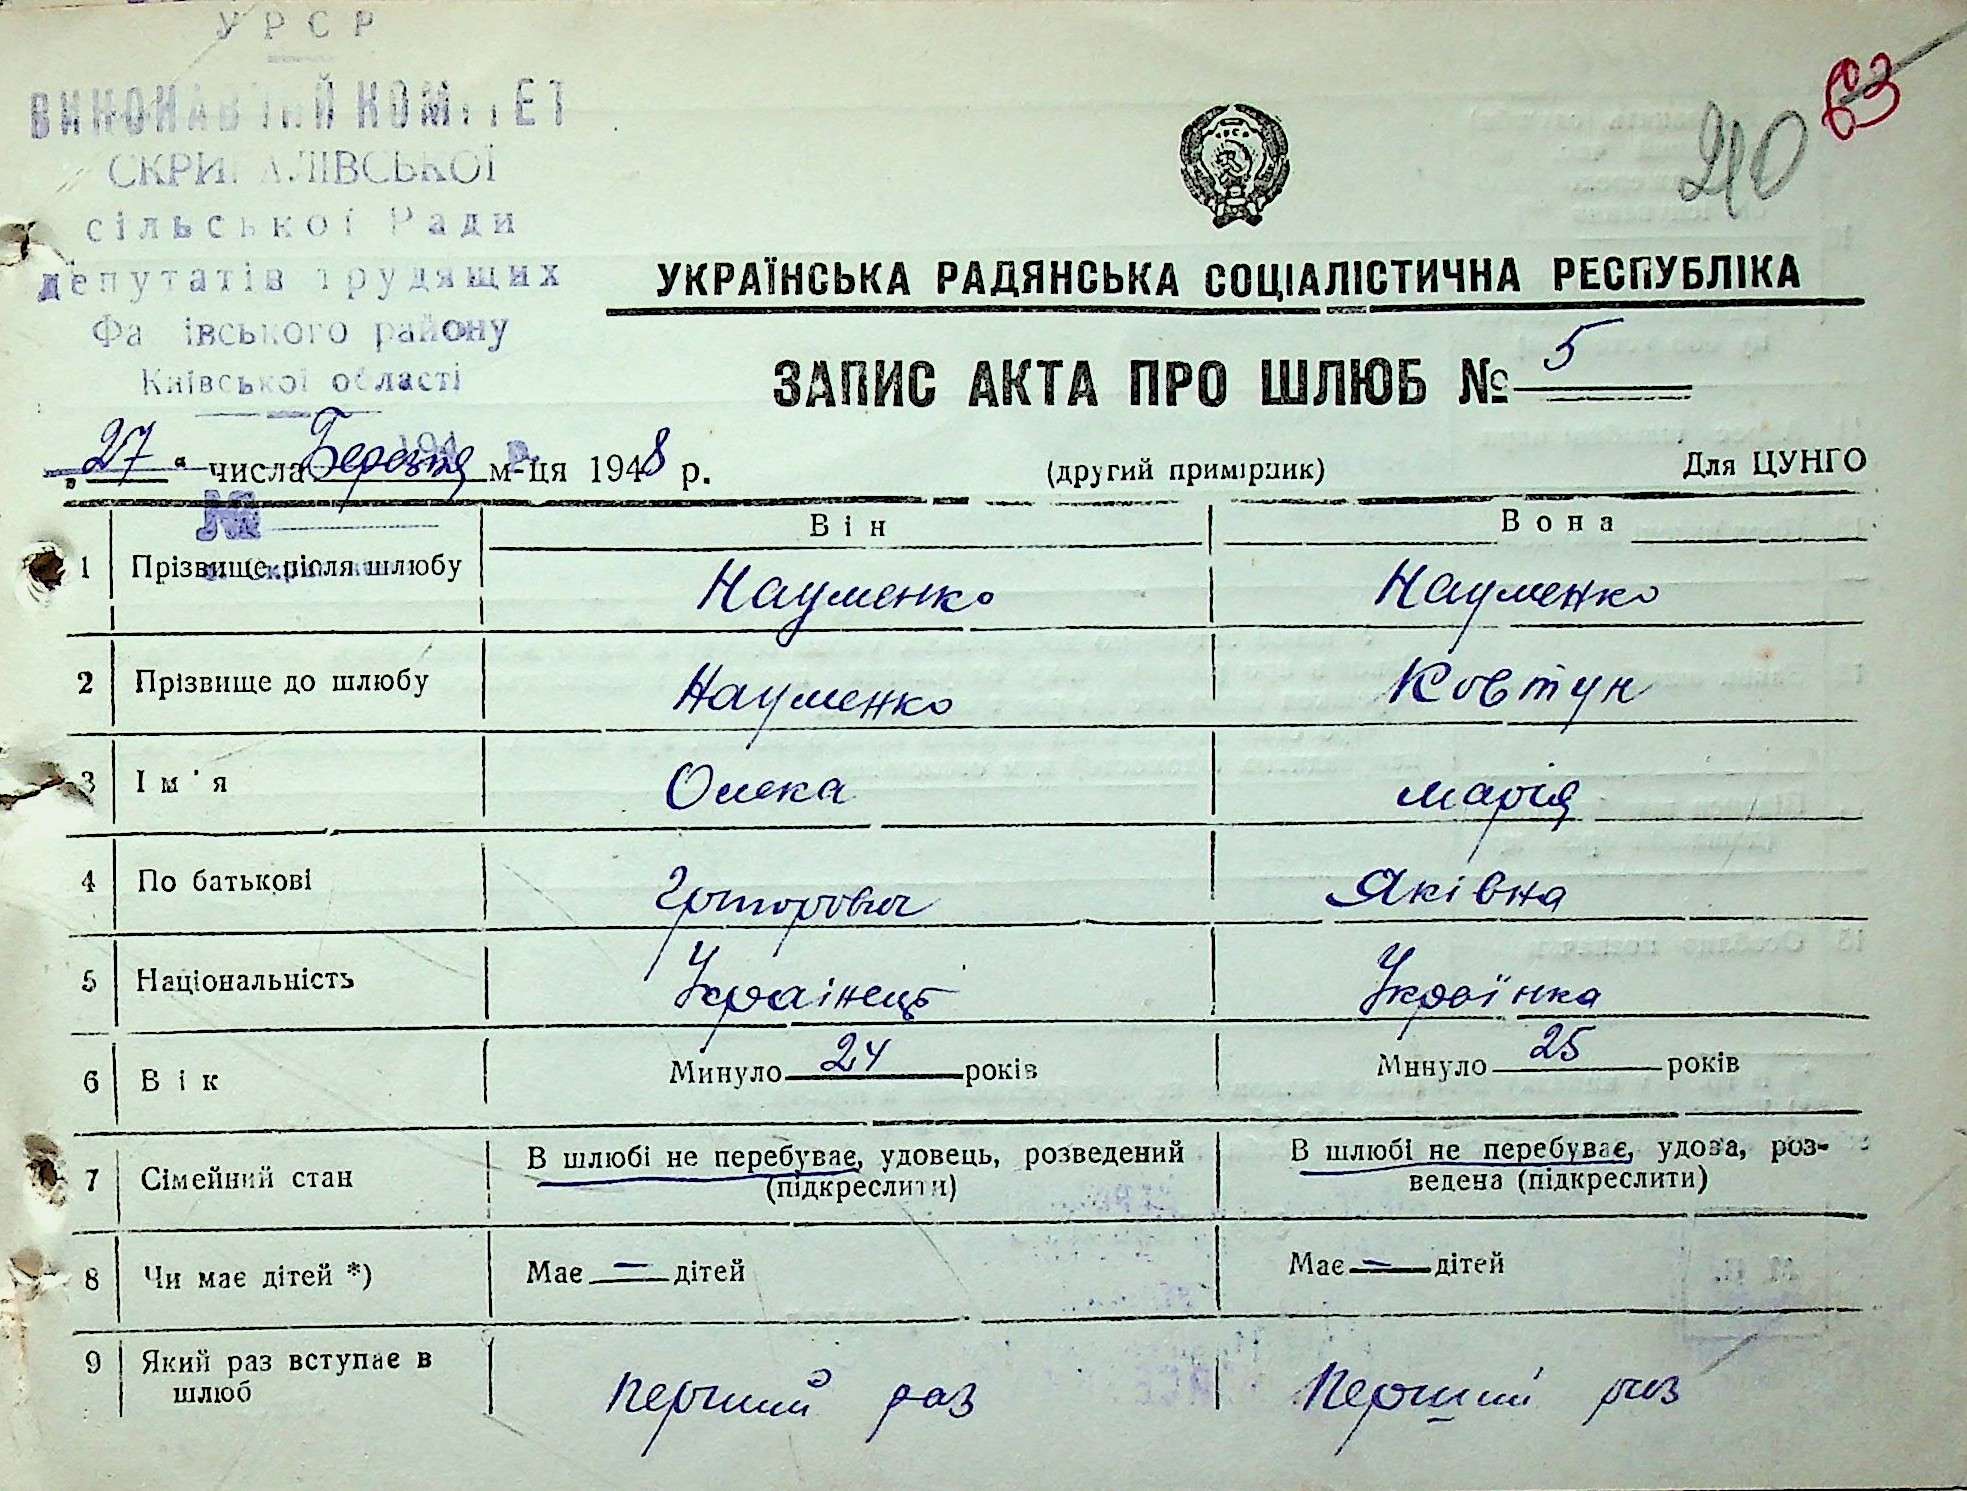 УРСР
ВИКОНАВЧИЙ КОМІТЕТ
СКРИГАЛІВСЬКОЇ
сільської Ради
депутатів трудящих
Фа івського району
Київської області
63
210
УКРАЇНСЬКА РАДЯНСЬКА СОЦІАЛІСТИЧНА РЕСПУБЛІКА
ЗАПИС АКТА ПРО ШЛЮБ № 5
„27“ числа Березня м-ця 1948 р. (другий примірник) Для ЦУНГО
№
Він Вона
1 Прізвище після шлюбу Науменко Науменко
2 Прізвище до шлюбу Науменко Ковтун
3 Ім'я Олека Марія
4 По батькові Григорович Яківна
5 Національність Українець Українка
6 Вік Минуло 24 років Минуло 25 років
7 Сімейний стан В шлюбі не перебуває, удовець, розведений (підкреслити) В шлюбі не перебуває, удова, роз-
ведена (підкреслити)
8 Чи має дітей *) Має — дітей Має — дітей
9 Який раз вступає в
шлюб Перший раз Перший раз